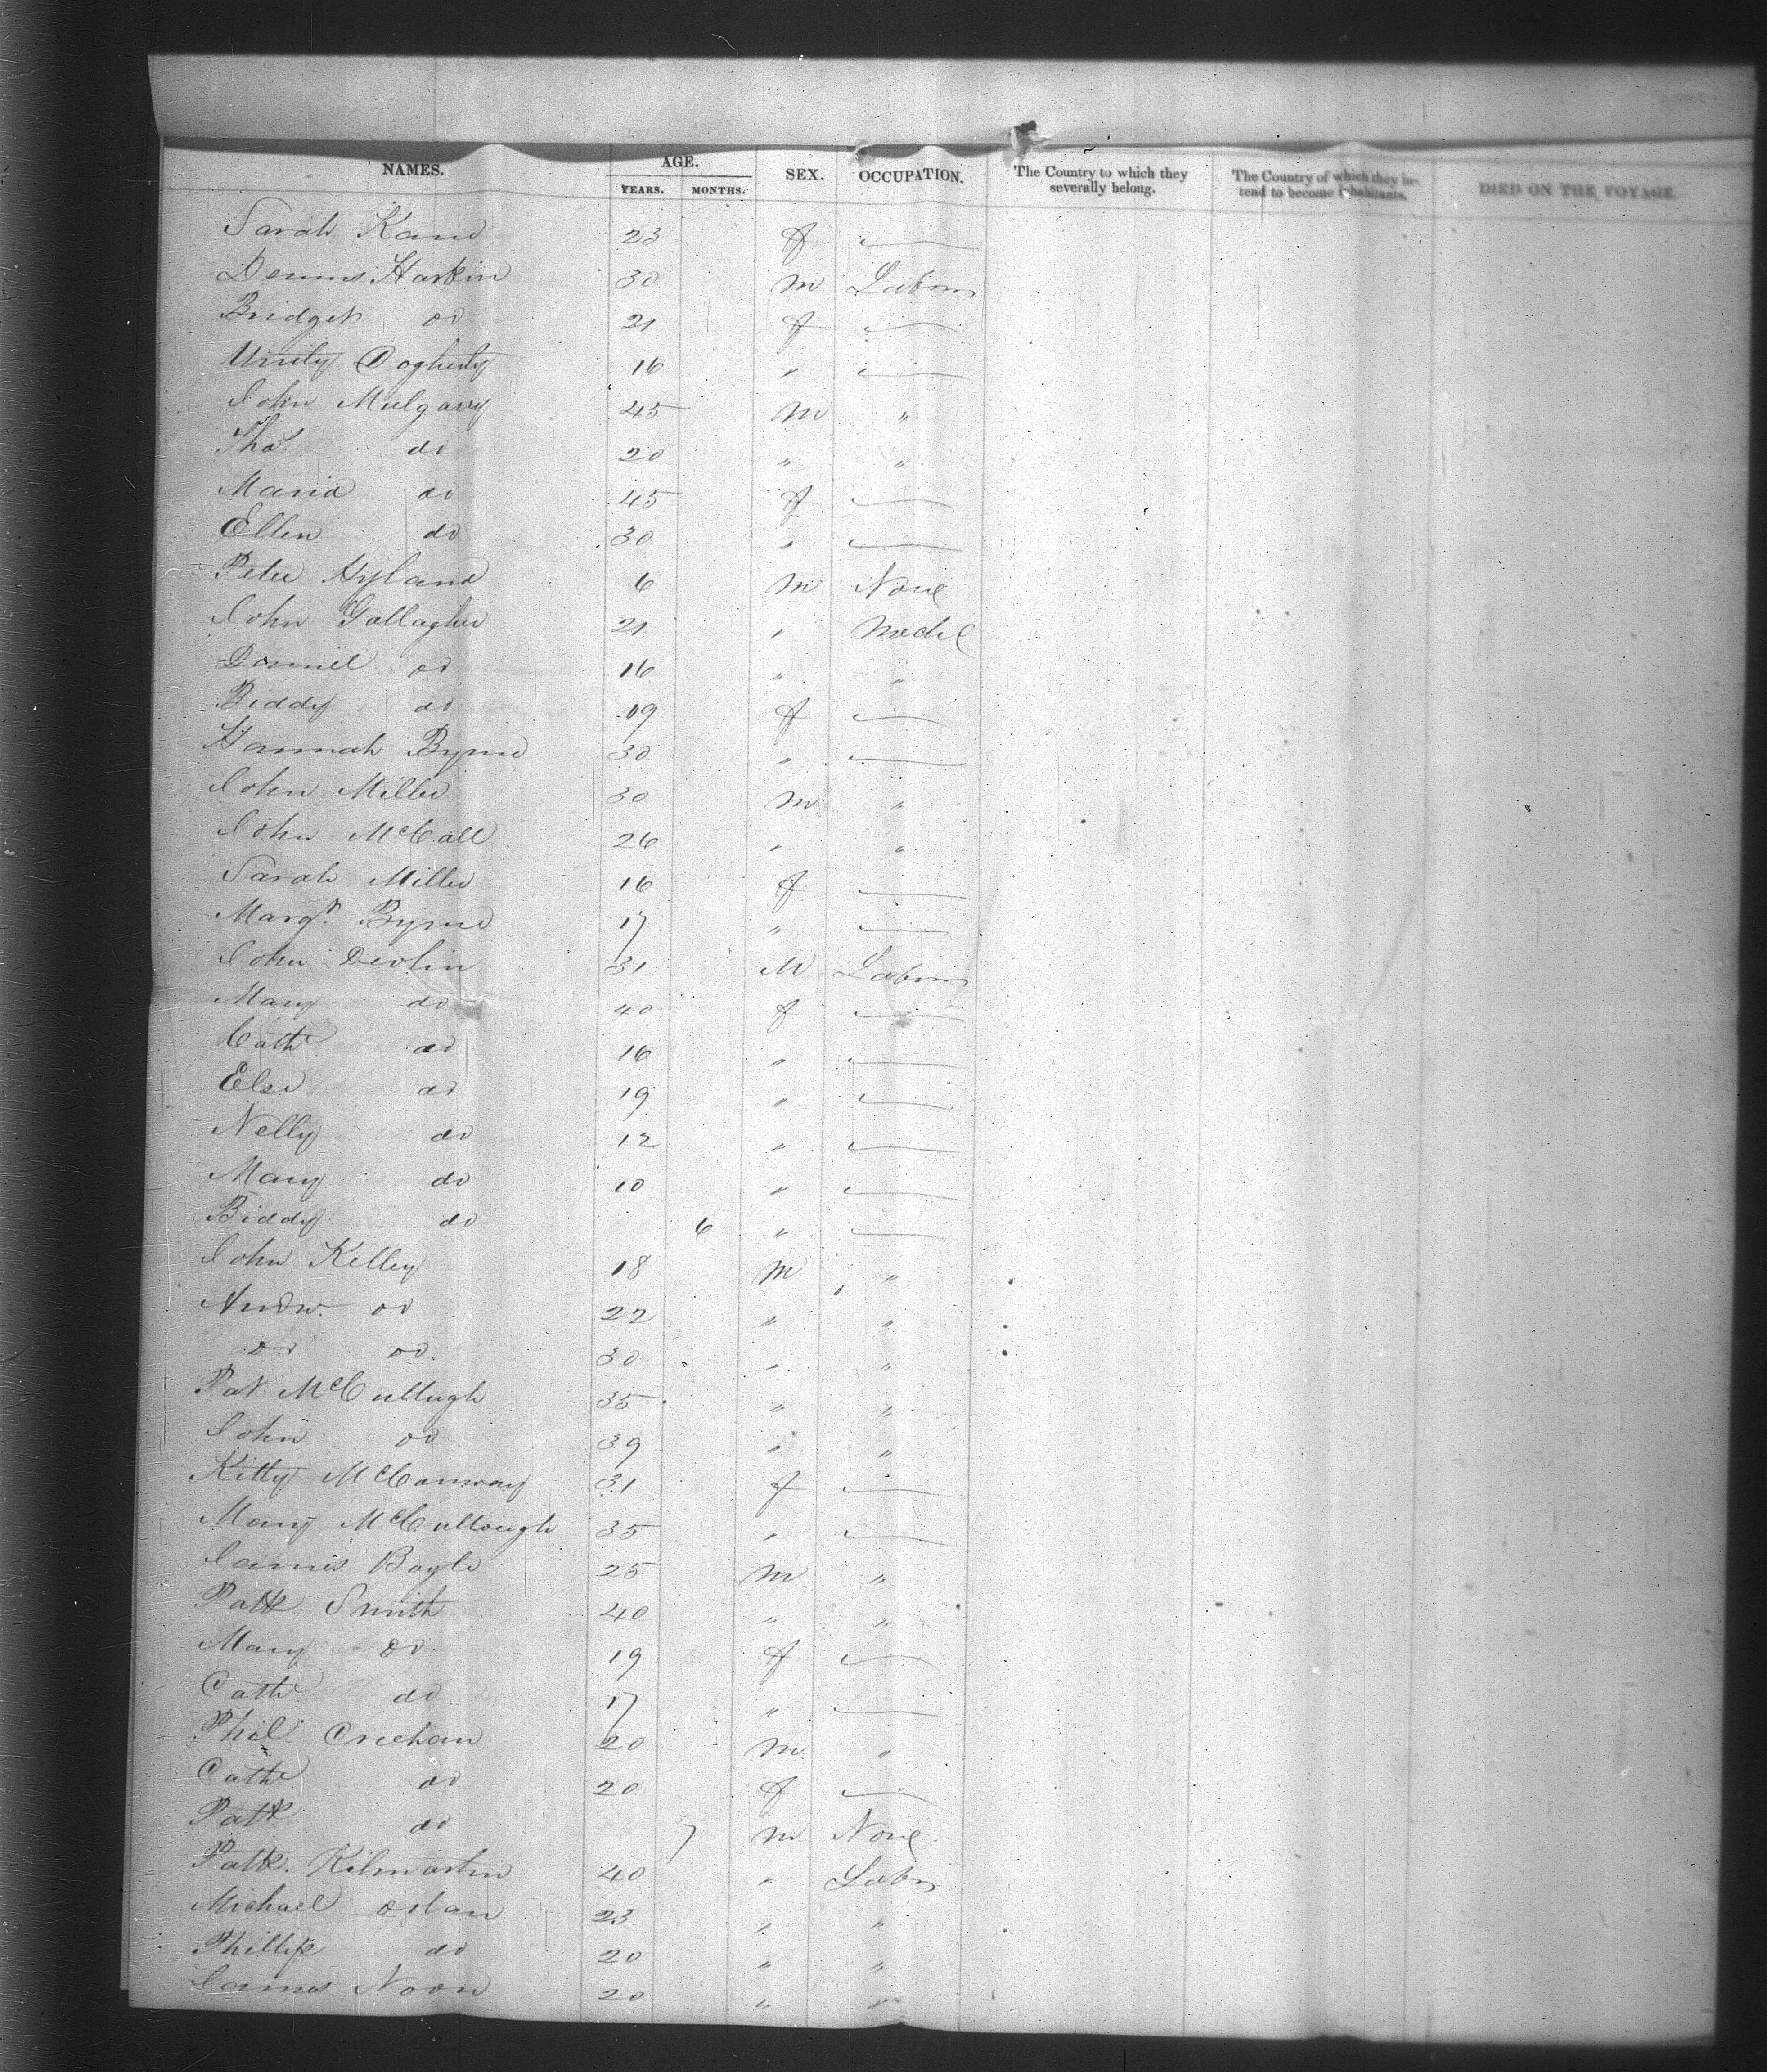 NAMES. AGE. SEX. OCCUPATION. The Country to which they severally belong. The Country of which they intend to become inhabitants. DIED ON THE VOYAGE.
YEARS. MONTHS.
Sarah Kane 23 f —
Dennis Harkin 30 m Labour
Bridget do 21 f —
Unity Dogherty 16 " —
John Mulgarry 45 m "
Thos. do 20 " "
Maria do 45 f —
Ellen do 30 " —
Peter Hyland 6 m None
John Gallagher 21 "
Daniel do 16 " "
Biddy do 19 f —
Hannah Byrne 30 " —
John Miller 30 m "
John McCall 26 " "
Sarah Miller 16 f —
Margt. Byrne 17 " —
John Devlin 31 M Labour
Mary do 40 f —
Cathe do 16 " —
Else do 19 " —
Nelly do 12 " —
Mary do 10 " —
Biddy do 6 " —
John Kelley 18 m "
Andw. do 22 " "
do do. 30 " "
Pat McCullugh 35 " "
John do 39 " "
Kitty McConway 31 f —
Mary McCullough 35 " —
James Boyle 25 m "
Patk Smith 40 " "
Mary do 19 f —
Cathe do 17 " —
Phil Creehan 20 m "
Cathe do 20 f —
Patk do 7 m None
Patk. Kilmartin 40 " Labr
Michael Dolan 23 " "
Phillip do 20 " "
James Noon 20 " "